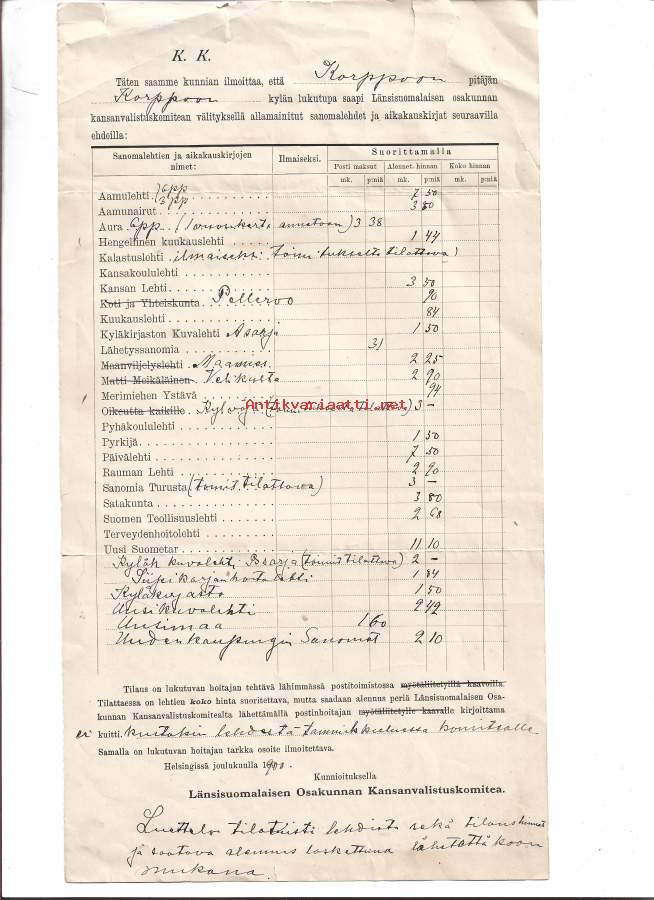 K. K.
Täten saamme kunnian ilmoittaa, että Korppoon pitäjän
Korppoon kylän lukutupa saapi Länsisuomalaisen osakunnan
kansanvalistuskomitean välityksellä allamainitut sanomalehdet ja aikakauskirjat seuraavilla
ehdoilla:
Sanomalehtien ja aikakauskirjojen nimet: Ilmaiseksi. Suorittamalla
Posti maksut Alennet. hinnan Koko hinnan
mk. p:niä mk. p:niä mk. p:niä
Aamulehti 7 50
Aamunairut 3 80
Aura 6pp. 3 38
Hengellinen kuukauslehti 1 44
Kalastuslehti ilmaiseksi: tilattava)
Kansakoululehti
Kansan Lehti 3 50
Koti ja Yhteiskunta Pellervo 90
Kuukauslehti 84
Kyläkirjaston Kuvalehti Asarja 1 50
Lähetyssanomia 31
Maanviljelyslehti Maamies 2 25
Matti Meikäläinen Velikulta 2 90
Merimiehen Ystävä 94
Oikeutta kaikille 3 –
Antikvariaatti.net
Pyhäkoululehti
Pyrkijä 1 50
Päivälehti 7 50
Rauman Lehti 2 90
Sanomia Turusta (toimit. tilattava) 3 –
Satakunta 3 80
Suomen Teollisuuslehti 2 68
Terveydenhoitolehti
Uusi Suometar 11 10
Kyläk kuvalehti Bsarja (toimit tilattava) 2 –
Siipikarjanhoitolehti 1 84
Kyläkirjasto 1 50
Uusikuvalehti 2 42
Uusimaa 1 60
Uudenkaupungin Sanomat 2 10
Tilaus on lukutuvan hoitajan tehtävä lähimmässä postitoimistossa myötäliitetyillä kaavoilla.
Tilattaessa on lehtien koko hinta suoritettava, mutta saadaan alennus periä Länsisuomalaisen Osa-
kunnan Kansanvalistuskomitealta lähettämällä postinhoitajan myötäliitetylle kaavalle kirjoittama
kuitti. kustakin lehdestä tammikuussa komitealle.
Samalla on lukutuvan hoitajan tarkka osoite ilmoitettava.
Helsingissä joulukuulla 1900.
Kunnioituksella
Länsisuomalaisen Osakunnan Kansanvalistuskomitea.
Luettelo tilatuista lehdistä sekä tilaushinnat
ja saatava alennus laskettuna lähetettäköön
mukana.